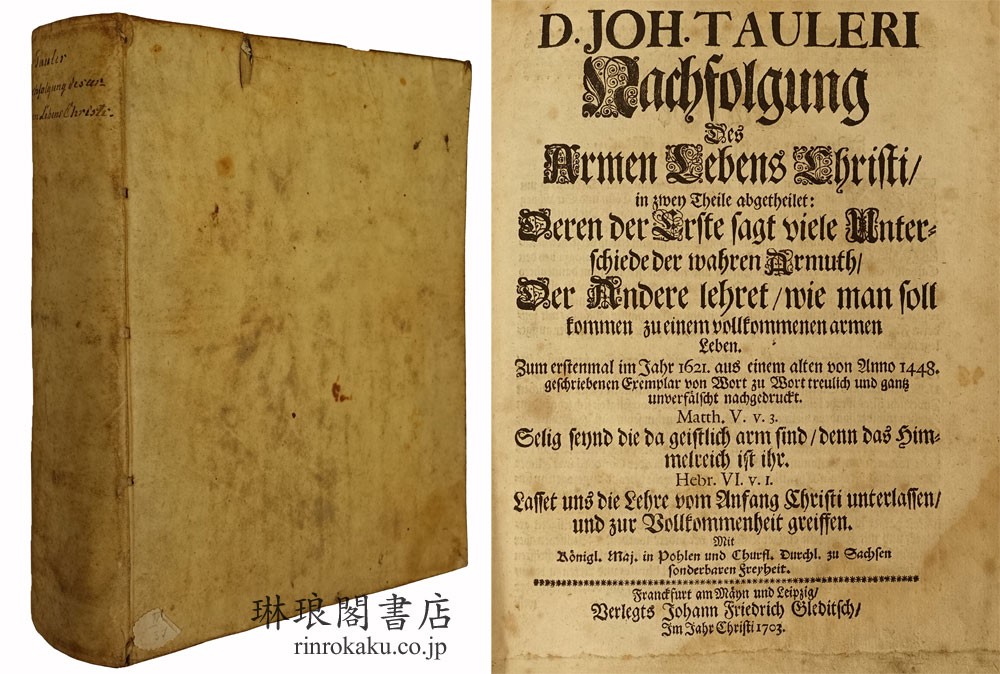 Tauler
Christi.
琳琅閣書店
rinrokaku.co.jp
D. JOH. TAULERI
Nachfolgung
Des
Armen Lebens Christi/
in zwey Theile abgetheilet:
Deren der Erste sagt viele Unter-
schiede der wahren Armuth/
Der Andere lehret/wie man soll
kommen zu einem vollkommenen armen
Leben.
Zum erstenmal im Jahr 1621. aus einem alten von Anno 1448.
geschriebenen Exemplar von Wort zu Wort treulich und gantz
unverfälscht nachgedruckt.
Matth. V. v. 3.
Selig seynd die da geistlich arm sind/denn das Him-
melreich ist ihr.
Hebr. VI. v. 1.
Lasset uns die Lehre vom Anfang Christi unterlassen/
und zur Vollkommenheit greiffen.
Mit
Königl. Maj. in Pohlen und Churfl. Durchl. zu Sachsen
sonderbaren Freyheit.
Franckfurt am Mäyn und Leipzig/
Verlegts Johann Friedrich Gleditsch/
Im Jahr Christi 1703.